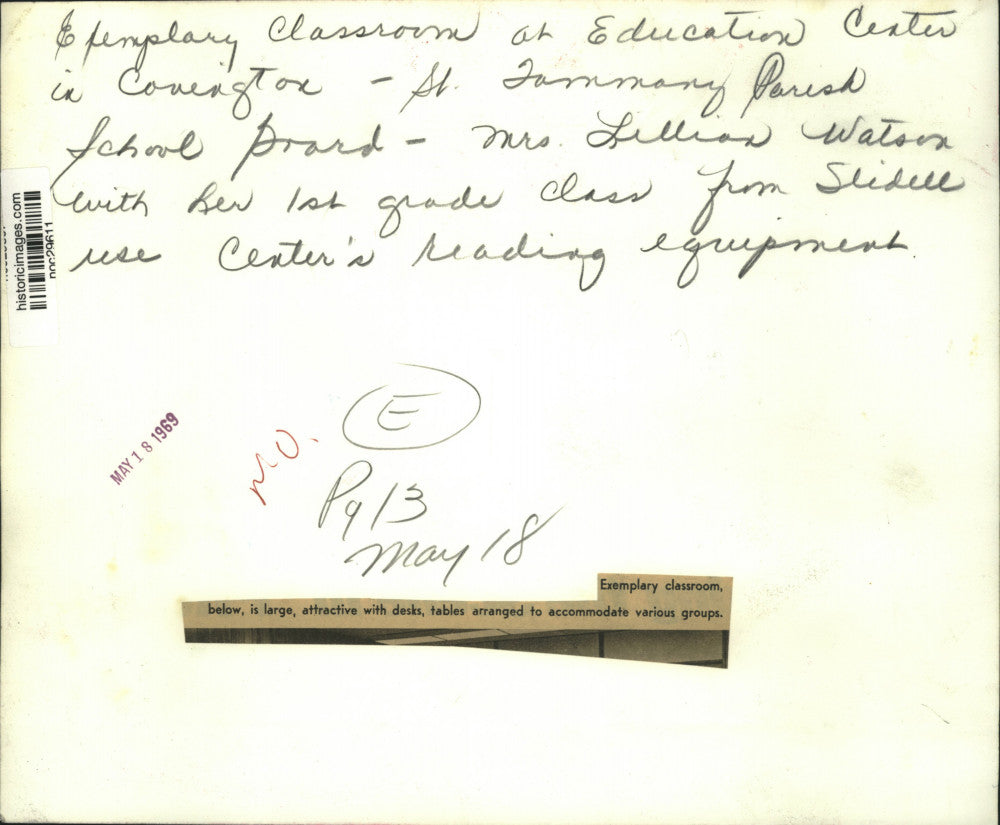 Exemplary Classroom at Education Center
in Covington - St. Tammany Parish
School Board - Mrs. Lillian Watson
with her 1st grade class from Slidell
use Center's reading equipment.
historicimages.com
noc29611
MAY 18 1969
E
N.O.
Pg 13
May 18
Exemplary classroom,
below, is large, attractive with desks, tables arranged to accommodate various groups.